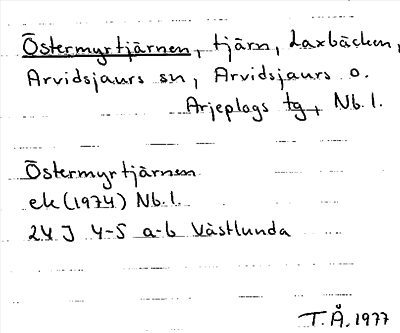 Östermyrtjärnen, tjärn, Laxbäcken,
Arvidsjaurs sn, Arvidsjaurs o.
Arjeplogs tg, Nb.l.
Östermyrtjärnen
ek (1974) Nb.l.
24 J 4-5 a-b Västlunda
T.Å. 1977